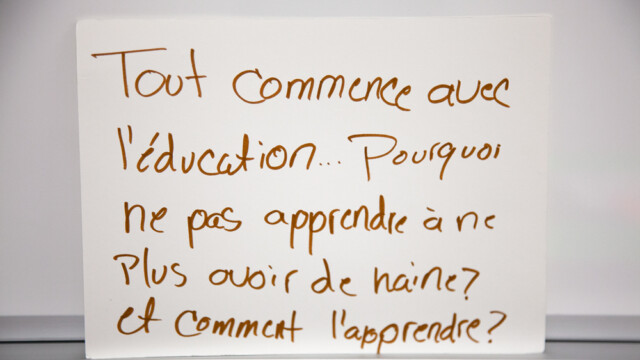 Tout commence avec
l'éducation... Pourquoi
ne pas apprendre à ne
Plus avoir de haine?
et comment l'apprendre?